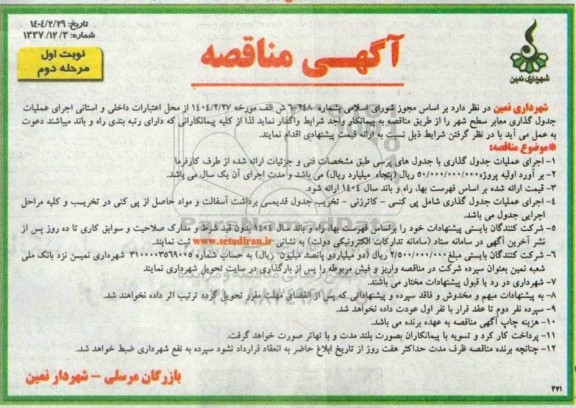 تاریخ: ۱۴۰۴/۲/۲۹
شماره: ۱۳۳۷/۱۲/۳
آگهی مناقصه
نوبت اول
مرحله دوم
شهرداری نمین
شهرداری نمین در نظر دارد بر اساس مجوز شورای اسلامی بشماره ۲۴۸-۶ ش الف مورخه ۱۴۰۴/۲/۲۷ از محل اعتبارات داخلی و استانی اجرای عملیات
جدول گذاری معابر سطح شهر را از طریق مناقصه به پیمانکار واجد شرایط واگذار نماید لذا از کلیه پیمانکارانی که دارای رتبه بندی راه و باند میباشند دعوت
به عمل می آید با در نظر گرفتن شرایط ذیل نسبت به ارائه قیمت پیشنهادی اقدام نمایند.
*موضوع مناقصه:
۱- اجرای عملیات جدول گذاری با جدول های پرسی طبق مشخصات فنی و جزئیات ارائه شده از طرف کارفرما
۲- بر آورد اولیه پروژه ۵۰/۰۰۰/۰۰۰/۰۰۰ ریال (پنجاه میلیارد ریال) می باشد و مدت اجرای آن یک سال می باشد.
۳- قیمت ارائه شده بر اساس فهرست بهاء راه و باند سال ۱۴۰۴ ارائه شود.
۴- اجرای عملیات جدول گذاری شامل پی کنسی - کاترزنی - تخریب جدول قدیمسی برداشت آسفالت و مواد حاصل از پی کنی در تخریسب و کلیه مراحل
اجرایی جدول می باشد.
۵- شرکت کنندگان بایستی پیشنهادات خود را براساس فهرست بهاء راه و باند سال ۱۴۰۴ بدون قید شرط و مدارک صلاحیت و سوابق کاری تا ده روز پس از
نشر آخرین آگهی در سامانه ستاد (سامانه تدارکات الکترونیکی دولت) به نشانی www.setadiran.ir ثبت نمایند.
۶- شرکت کنندگان بایستی مبلغ ۲/۵۰۰/۰۰۰/۰۰۰ ریال (دو میلیاردو پانصد میلیون ریال) به حساب شماره ۳۱۰۰۰۰۳۵۶۹۰۰۵ شهرداری نمین نزد بانک ملی
شعبه نمین بعنوان سپرده شرکت در مناقصه واریز و فیش مربوطه را پس از بارگذاری در سایت تحویل شهرداری نمایند
۷- شهرداری در رد یا قبول پیشنهادات مختار می باشند.
۸- به پیشنهادات مبهم و مخدوش و فاقد سپرده و پیشنهاداتی که پس از انقضای مهلت مقرر تحویل گردد ترتیب اثر داده نخواهند شد.
۹- سپرده نفر دوم تا عقد قرار با نفر اول عودت داده نخواهد شد.
۱۰- هزینه چاپ آگهی مناقصه به عهده برنده می باشد.
۱۱- پرداخت کار کرد و تسویه با پیمانکاران بصورت بلند مدت و یا تهاتر صورت خواهد گرفت.
۱۲- چنانچه برنده مناقصه ظرف مدت حداکثر هفت روز از تاریخ ابلاغ حاضر به انعقاد قرارداد نشود سپرده به نفع شهرداری ضبط خواهد شد.
بازرگان مرسلی – شهردار نمین
۴۷۱